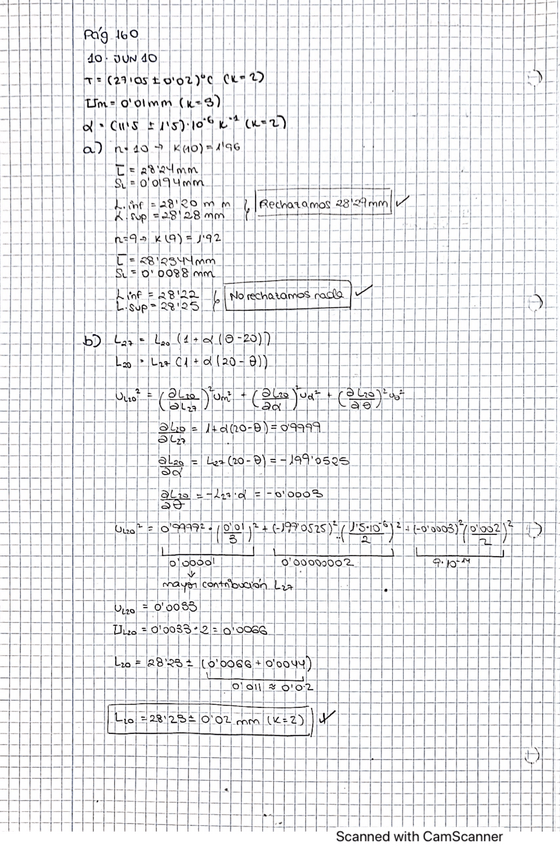 Pág 160
10. JUN 10
T = (27'05 ± 0'02)ºC (K=2)
Um = 0'01mm (K=3)
α = (11'5 ± 1'5)·10⁻⁶ K⁻¹ (K=2)
a) n=10 → K(10) = 1'96
L̅ = 28'24mm
SL = 0'0194mm
L.inf = 28'20 mm
L.sup = 28'28 mm
Rechazamos 28'29mm ✓
n=9 → K(9) = 1'92
L̅ = 28'2344mm
SL = 0'0088 mm
L.inf = 28'22
L.sup = 28'25
No rechazamos nada ✓
b) L27 = L20 (1 + α (θ-20))
L20 = L27 (1 + α (20-θ))
UL20² = (∂L20/∂L27)² Um² + (∂L20/∂α)² Uα² + (∂L20/∂θ)² Uθ²
∂L20/∂L27 = 1+α(20-θ) = 0'9999
∂L20/∂α = L27 (20-θ) = -199'0525
∂L20/∂θ = -L27·α = -0'0003
UL20² = 0'9999² · (0'01/3)² + (-199'0525)² · (1'5·10⁻⁶/2)² + (-0'0003)² (0'002/2)²
0'00001 0'00000002 9·10⁻¹⁴
↓
mayor contribución L27
UL20 = 0'0033
UL20 = 0'0033·2 = 0'0066
L20 = 28'23 ± (0'0066 + 0'0044)
0'011 ≈ 0'02
L20 = 28'23 ± 0'02 mm (K=2) ✓
Scanned with CamScanner